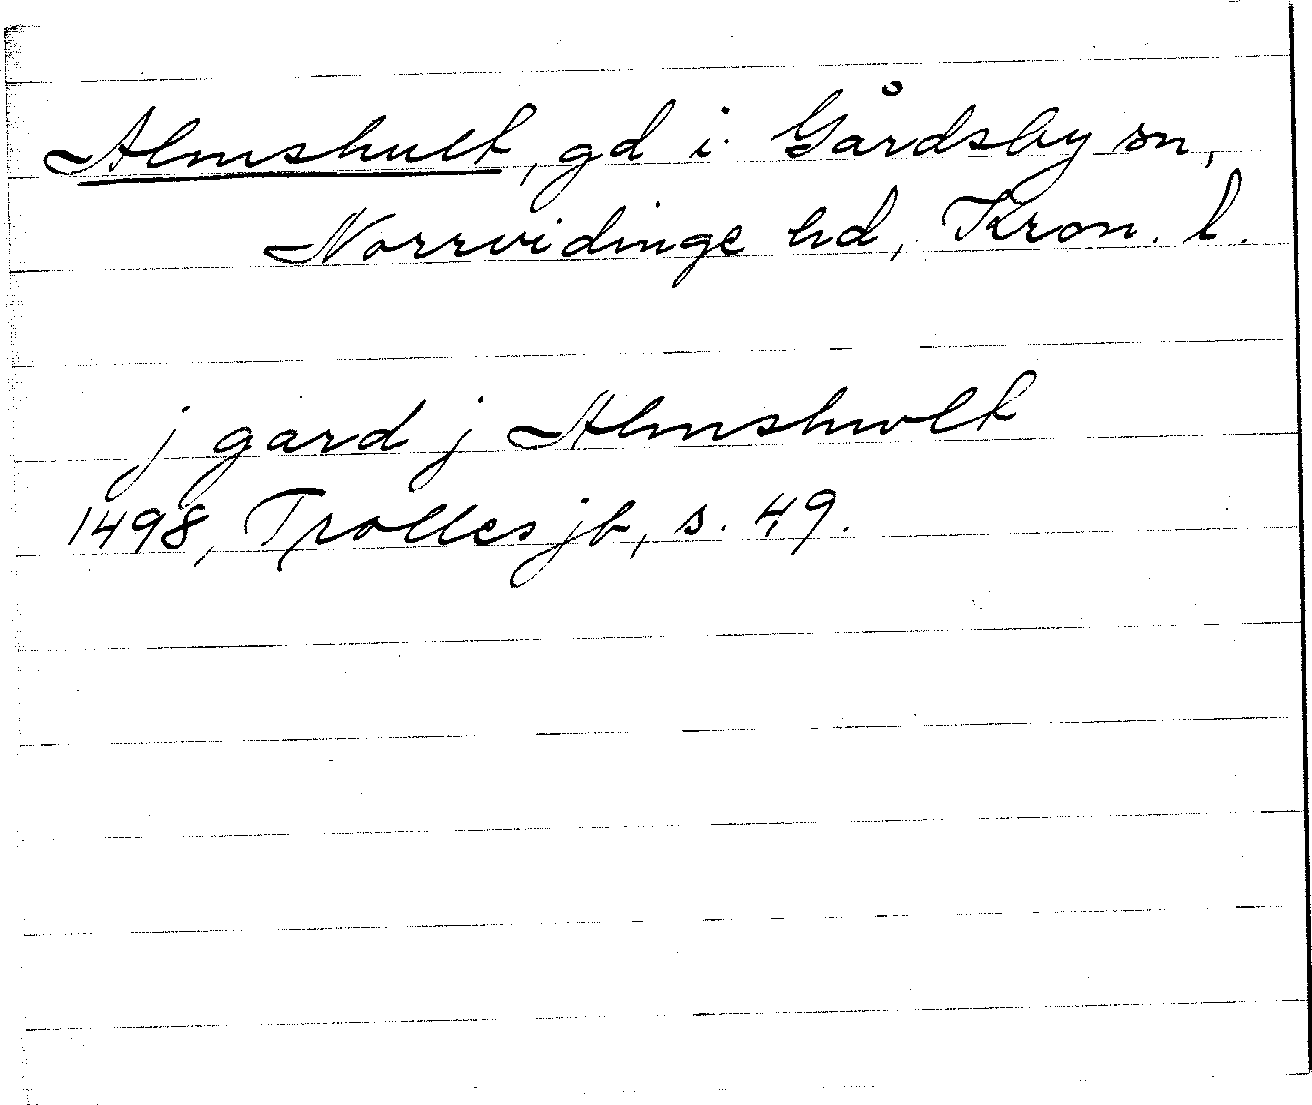 Almshult, gd i Gårdsby sn,
Norrvidinge hd, Kron. l.
j gard j Almshwlt
1498, Trolles jb, s. 49.